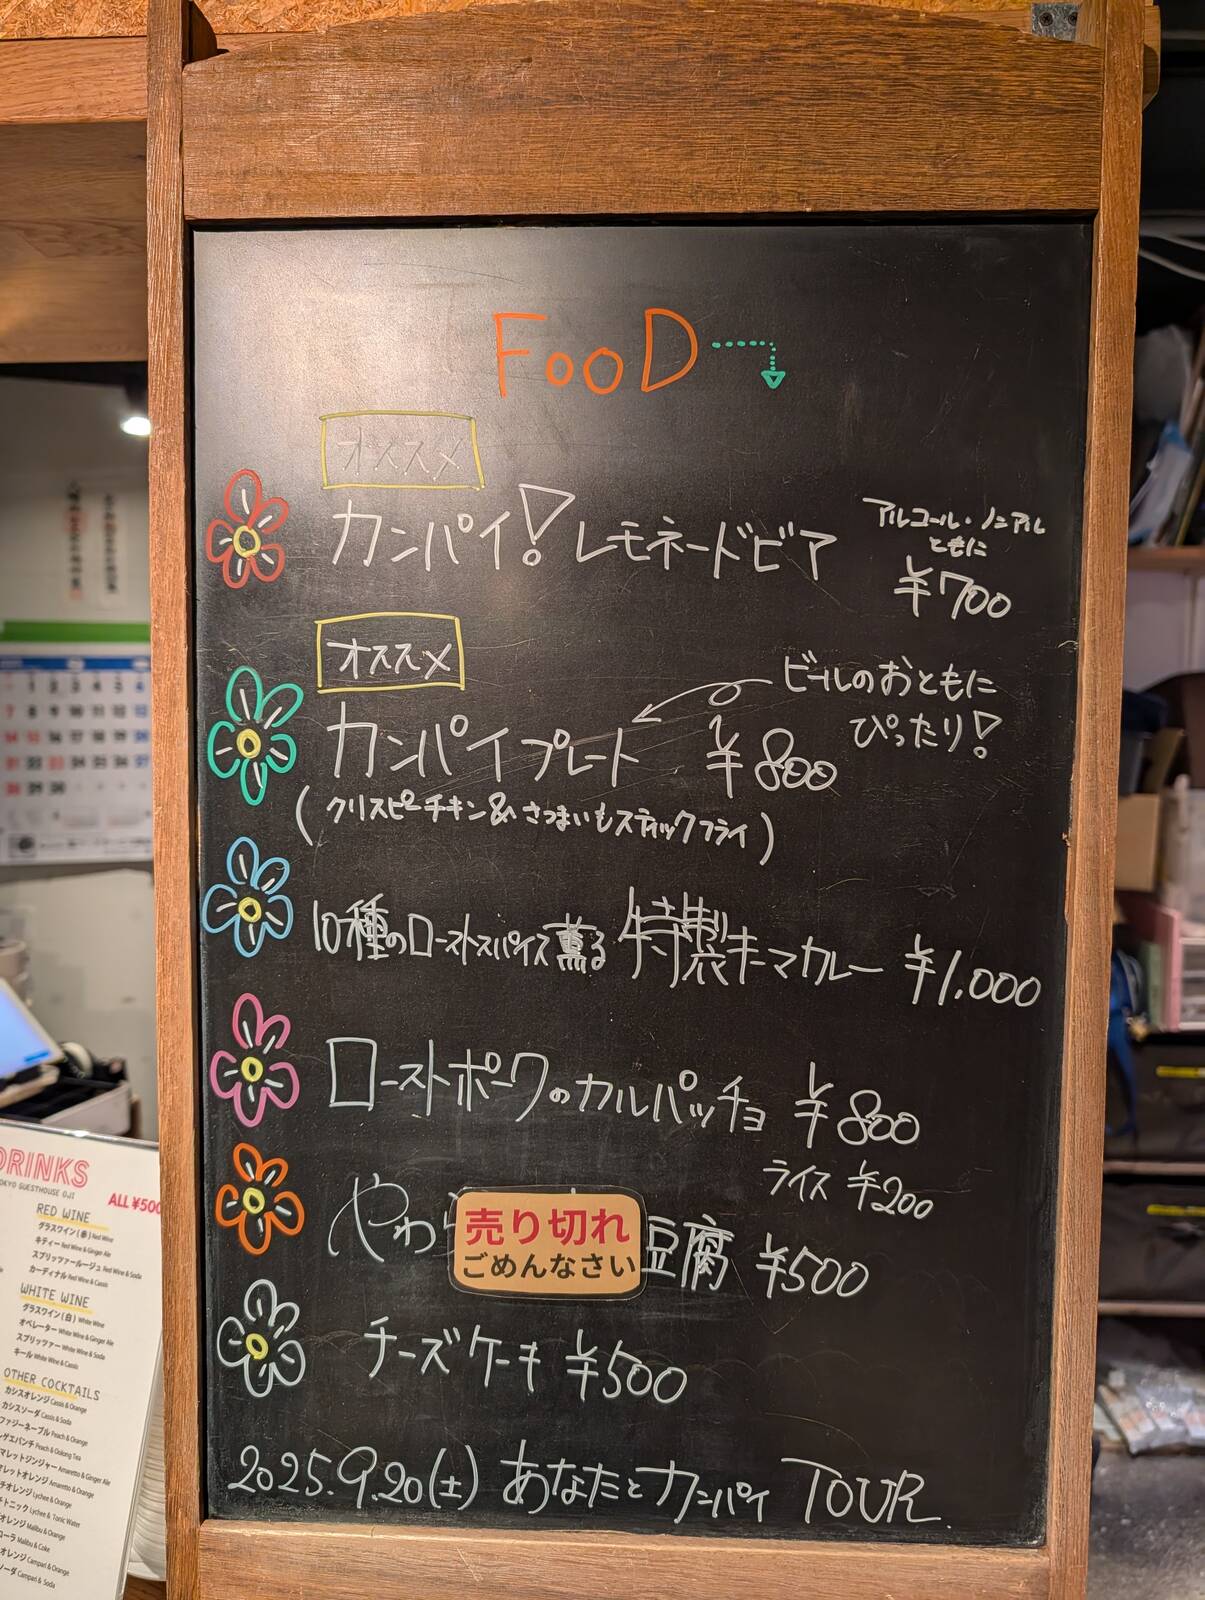 FooD
オススメ
カンパイ!レモネードビア
アルコール・ノンアル
ともに
¥700
オススメ
ビールのおともに
ぴったり!
カンパイプレート ¥800
(クリスピーチキン&さつまいもスティックフライ)
10種のローストスパイス薫る 特製キーマカレー ¥1,000
ローストポークのカルパッチョ ¥800
ライス ¥200
やわ
売り切れ
ごめんなさい
豆腐 ¥500
チーズケーキ ¥500
2025.9.20(土) あなたとカンパイ TOUR
DRINKS
TOKYO GUESTHOUSE OJI
ALL ¥500
RED WINE
グラスワイン(赤) Red Wine
キティー Red Wine & Ginger Ale
スプリッツァールージュ Red Wine & Soda
カーディナル Red Wine & Cassis
WHITE WINE
グラスワイン(白) White Wine
オペレーター White Wine & Ginger Ale
スプリッツァー White Wine & Soda
キール White Wine & Cassis
OTHER COCKTAILS
カシスオレンジ Cassis & Orange
カシスソーダ Cassis & Soda
ファジーネーブル Peach & Orange
レゲエパンチ Peach & Oolong Tea
マレットジンジャー Amaretto & Ginger Ale
レットオレンジ Amaretto & Orange
チオレンジ Lychee & Orange
チトニック Lychee & Tonic Water
オレンジ Malibu & Orange
コーラ Malibu & Coke
オレンジ Campari & Orange
ソーダ Campari & Soda